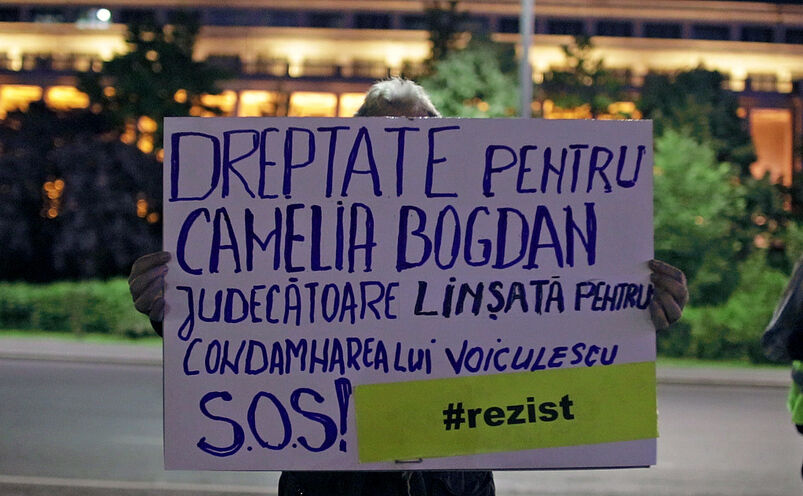 DREPTATE PENTRU
CAMELIA BOGDAN
JUDECĂTOARE LINȘATĂ PENTRU
CONDAMNAREA LUI VOICULESCU
S.O.S!
#rezist